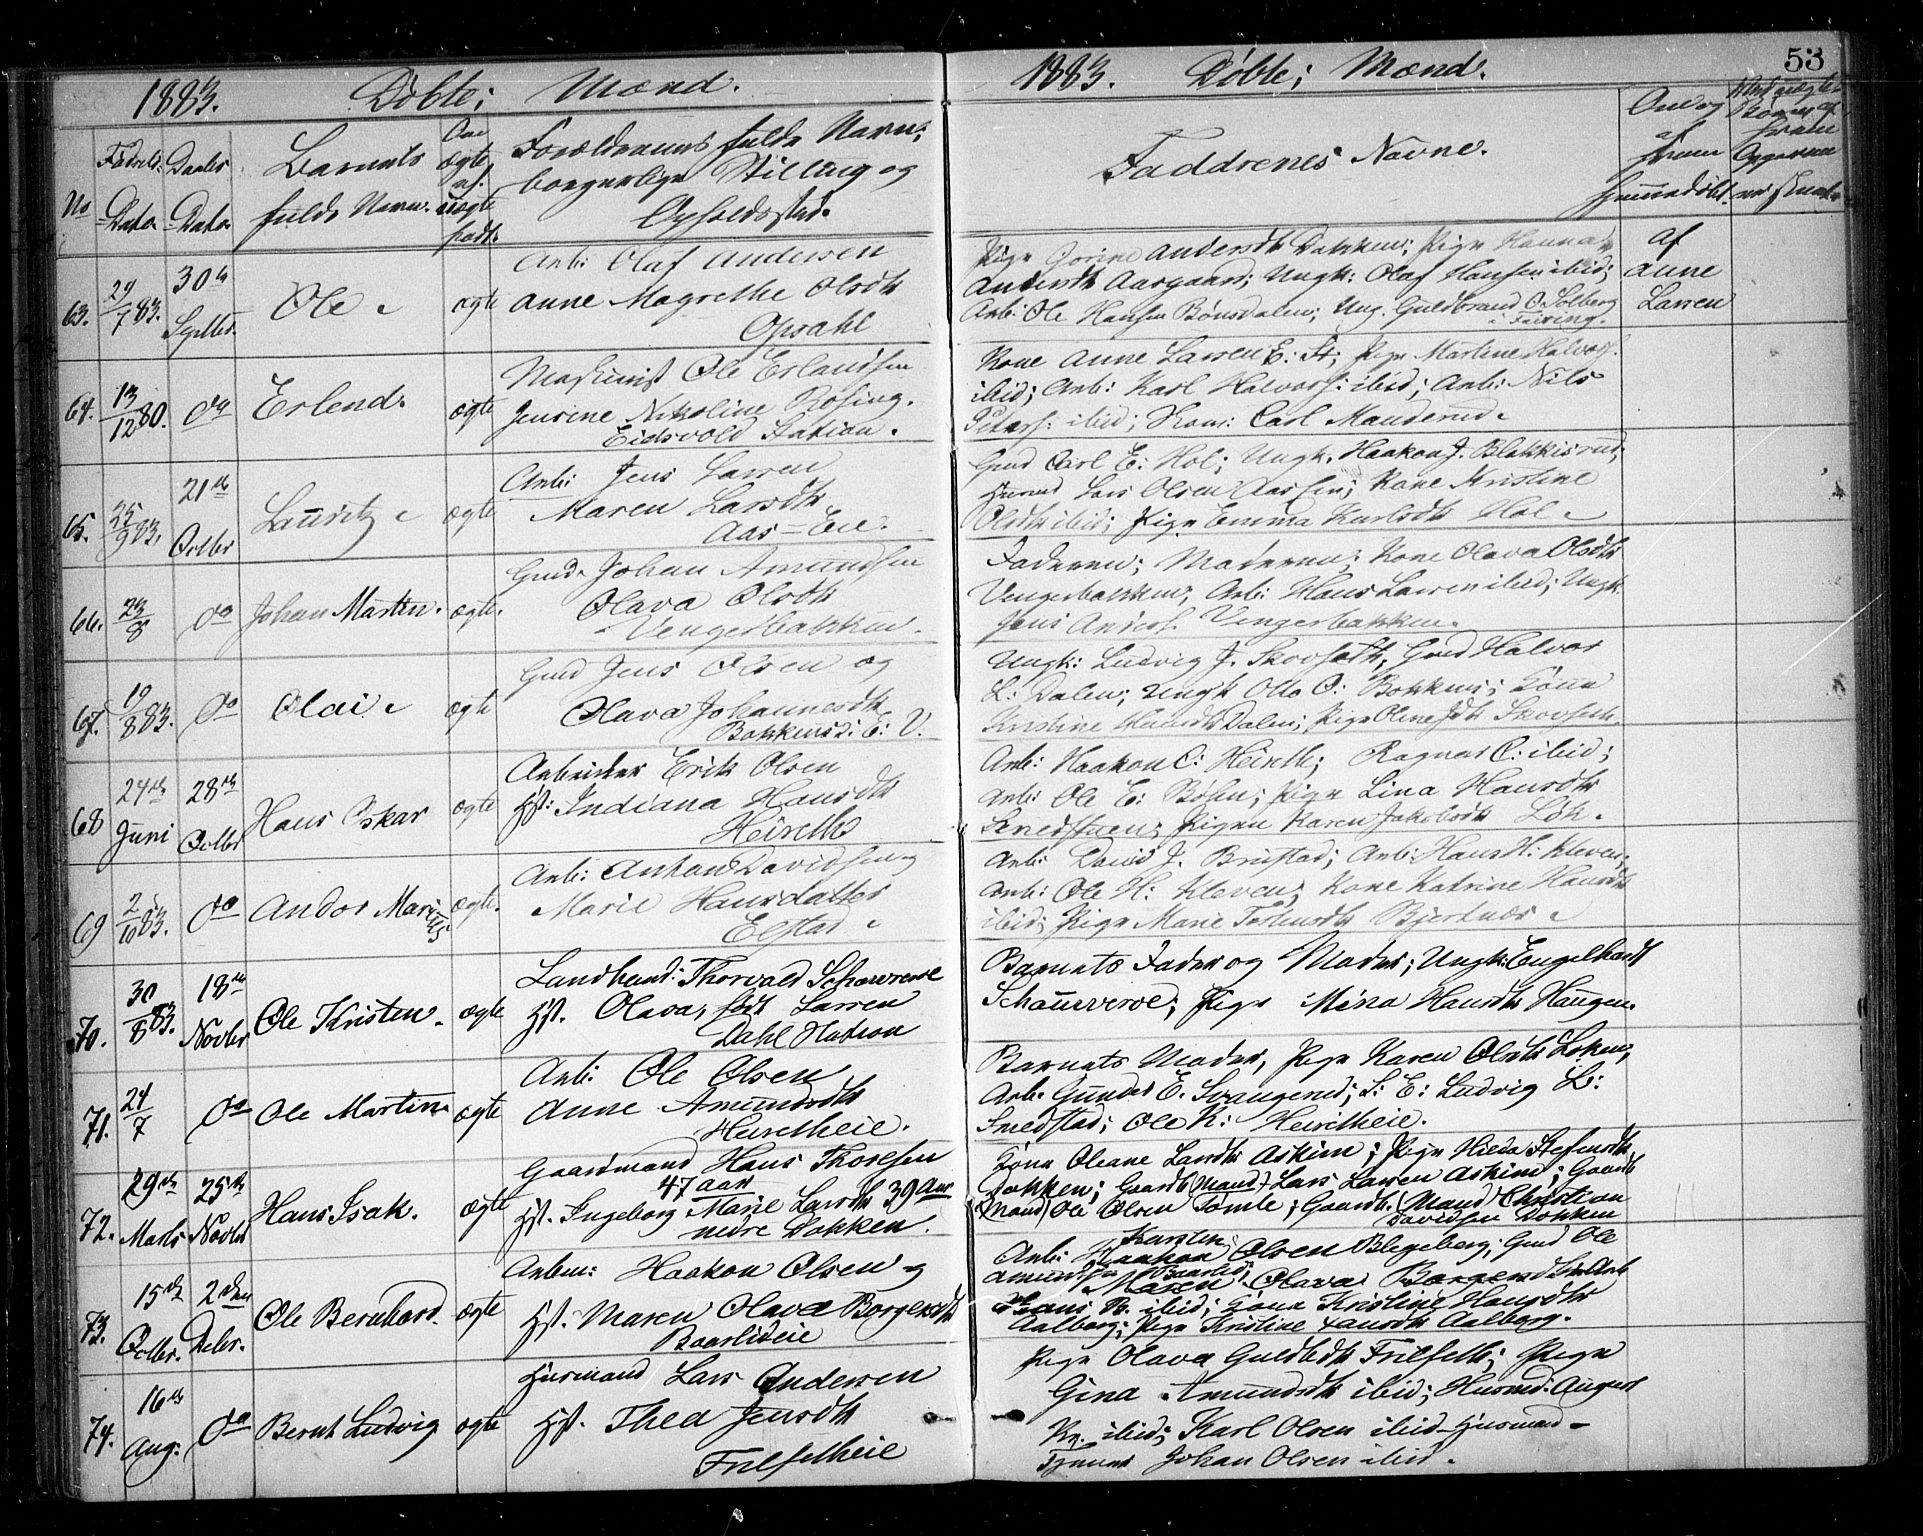 1883. Døbte; Mænd.
No
Fødsels-Dato.
Daabs Dato.
Barnets fulde Navn.
Om ægte el. uægte født.
Forældrenes fulde Navn,
borgerlige Stilling og
Opholdssted.
63. 29/7 83. 30te Septbr. Ole. ægte
Arb: Olaf Andersen
Anne Magrethe Olsdtr
Opsahl
64. 13/12 80. do Erlend. ægte
Maskinist Ole Erlandsen
Jensine Nikoline Rosing.
Eidsvold Station.
65. 25/9 83. 21de Octbr Lauritz. ægte
Arb: Jens Larsen
Maren Larsdtr
Aas-Eie.
66. 23/8 do Johan Martin. ægte.
Gmd. Johan Amundsen
Olava Olsdtr
Vengerbakken.
67. 19/8 83. do Olai. ægte
Gmd Jens Olsen og
Olava Johannesdtr
Bakkens i E: V.
68 24de Juni 28de Octbr Hans Oskar ægte
Arbeider Erik Olsen
Hst: Indiana Hansdtr
Heireth
69 2/10 83. do Andor Marius ægte.
Arb: Anton Davidsen og
Marie Hansdatter
Elstad.
70. 30/8 83. 18de Novbr Ole Kristen. ægte
Landhand: Thorvald Schouverve
Hst. Olava, født Larsen
Dahl Station
71. 24/7 do Ole Martin ægte
Arb: Ole Olsen
Anne Amundsdtr
Heiretheie.
72. 29de Marts 25de Novbr Hans Isak. ægte
Gaardmand Hans Thoresen
47 aar
Hst. Ingeborg Marie Larsdtr 39 Aar
nedre Dokken.
73. 15de Octbr. 2den Debr. Ole Bernhard. ægte
Arbm: Haakon Olsen og
Hst. Maren Olava Borgersdtr
Baarlideie
74. 16de Aug: do Bernt Ludvig ægte
Husmand Lars Andersen
Hst. Thea Jensdtr
Frilsetheie
53
1883. Døbte; Mænd.
Faddrenes Navne.
Om og af hvem hjemmedøbt.
Pige Jorine Andersdtr Dokken; Pige Hanna
Andersdtr Aasgaard; Ungk: Olaf Hansen ibid;
Arb: Ole Hansen Bønsdalen; Ung. Guldbrand O. Solberg
i Feiring.
af
Anne
Larsen
Kone Anne Larsen E: St; Pige Martine Halvors.
ibid; Arb: Karl Halvors: ibid; Arb: Nils
Peters: ibid; Carl Manderud.
Gmd Carl E: Hol; Ungk. Haakon J. Blakkisrud;
Husmd Lars Olsen Aas Eie; Kone Kristine
Olsdtr ibid; Pige Emma Karlsdtr Hol.
Faderen; Moderen; Kone Olava Olsdtr
Vengerbakken; Arb: Hans Larsen ibid; Ungk.
Jens Anders. Vengerbakken.
Ungk: Ludvig J. Skovseth; Gmd Halvor
L: Dalen; Ungk Otto O: Bakken; Kone
Kristine Dalen; Pige Oline Jdtr Skovseth.
Arb: Haakon O: Heireth; Ragnar O: ibid;
Arb: Ole E: Bøhn; Pige Lina Hansdtr
Smedstuen; Pigen Karen Jakobsdtr Løk.
Arb: David J. Brustad; Arb: Hans H: Kleven;
Arb: Ole H: Kleven; Kone Katrine Hansdtr
ibid; Pige Marie Bjerknæs.
Barnets Fader og Moder; Ungk: Engelhardt
Schouverve; Pige Mina Hansdtr Haugen.
Barnets Moder, Pige Karen Olsdtr Løken;
Arb. Gunder E. Svangerud; S: E: Ludvig L:
Smedstad; Ole K: Heiretheie.
Kone Oleane Larsdtr Askim; Pige Hilda Stefensdtr
Dokken; Gaardb (Mand) Lars Larsen Askim; Gaardb
(Mand) Ole Olsen Tømte; Gaardb. (Mand) Christian
Davidsen Dokken
Karsten
Arb: Haakon Olsen Blegeberg; Gmd Ole
Amundsen Baarlid;
Maren Olava Arb
Hans B. ibid; Kone Kristine Hansdtr
Aalborg; Pige Kristine Hansdtr Aalborg.
Pige Olava Guldbdtr Frilseth; Pige
Gina Amundsdtr ibid; Husmd: August
Kr. ibid; Karl Olsen ibid Husmand-
Johan Olsen ibid.